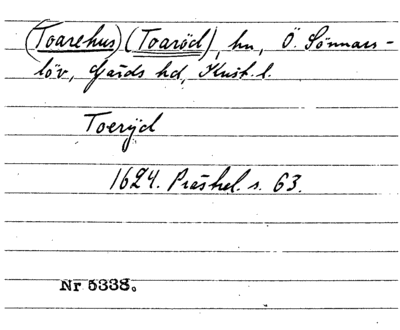 (Toarehus) (Toaröd), hu, Ö. Sönnars-
löv, Gärds hd, Krist. l.
Toeryd
1624. Präšhel. s. 63.
Nr 5338.